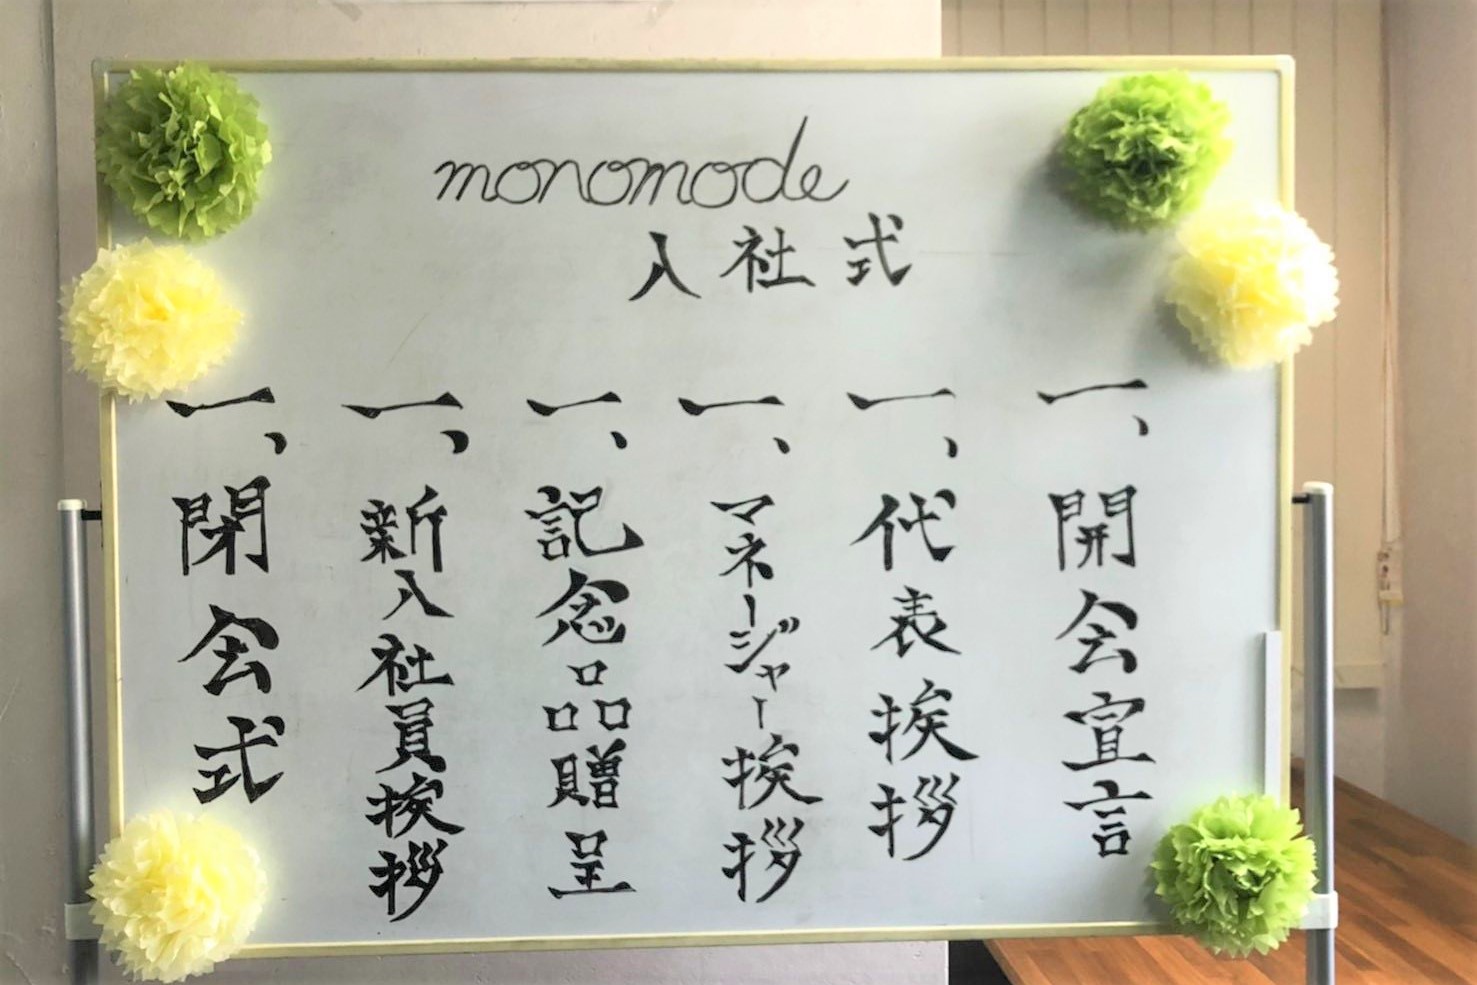 monomode
入社式
一、開会宣言
一、代表挨拶
一、マネージャー挨拶
一、記念品贈呈
一、新入社員挨拶
一、閉会式